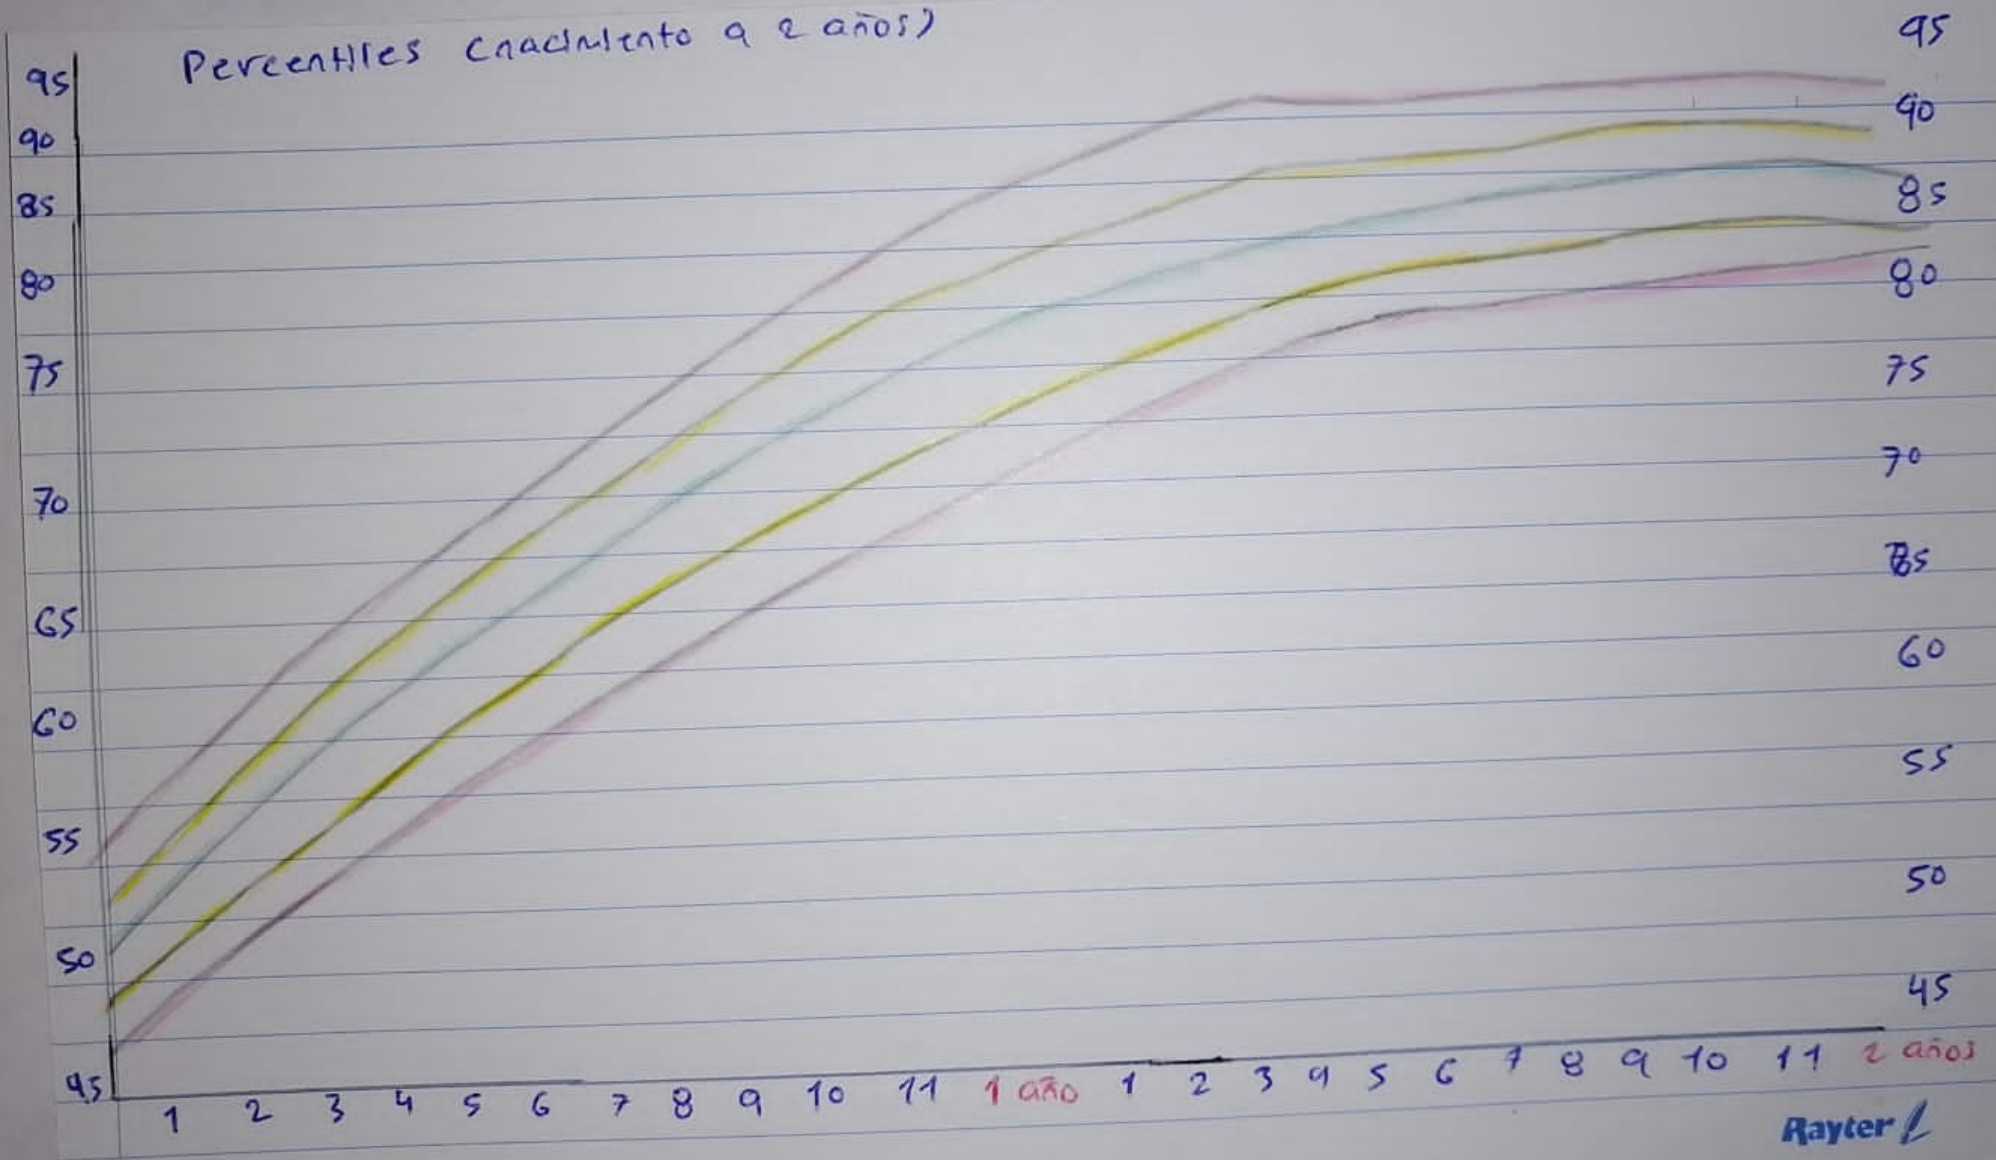 Percentiles (nacimiento a 2 años)
95
90
85
80
75
70
65
60
55
50
45
95
90
85
80
75
70
65
60
55
50
45
1 2 3 4 5 6 7 8 9 10 11 1 año 1 2 3 4 5 6 7 8 9 10 11 2 años
Rayter